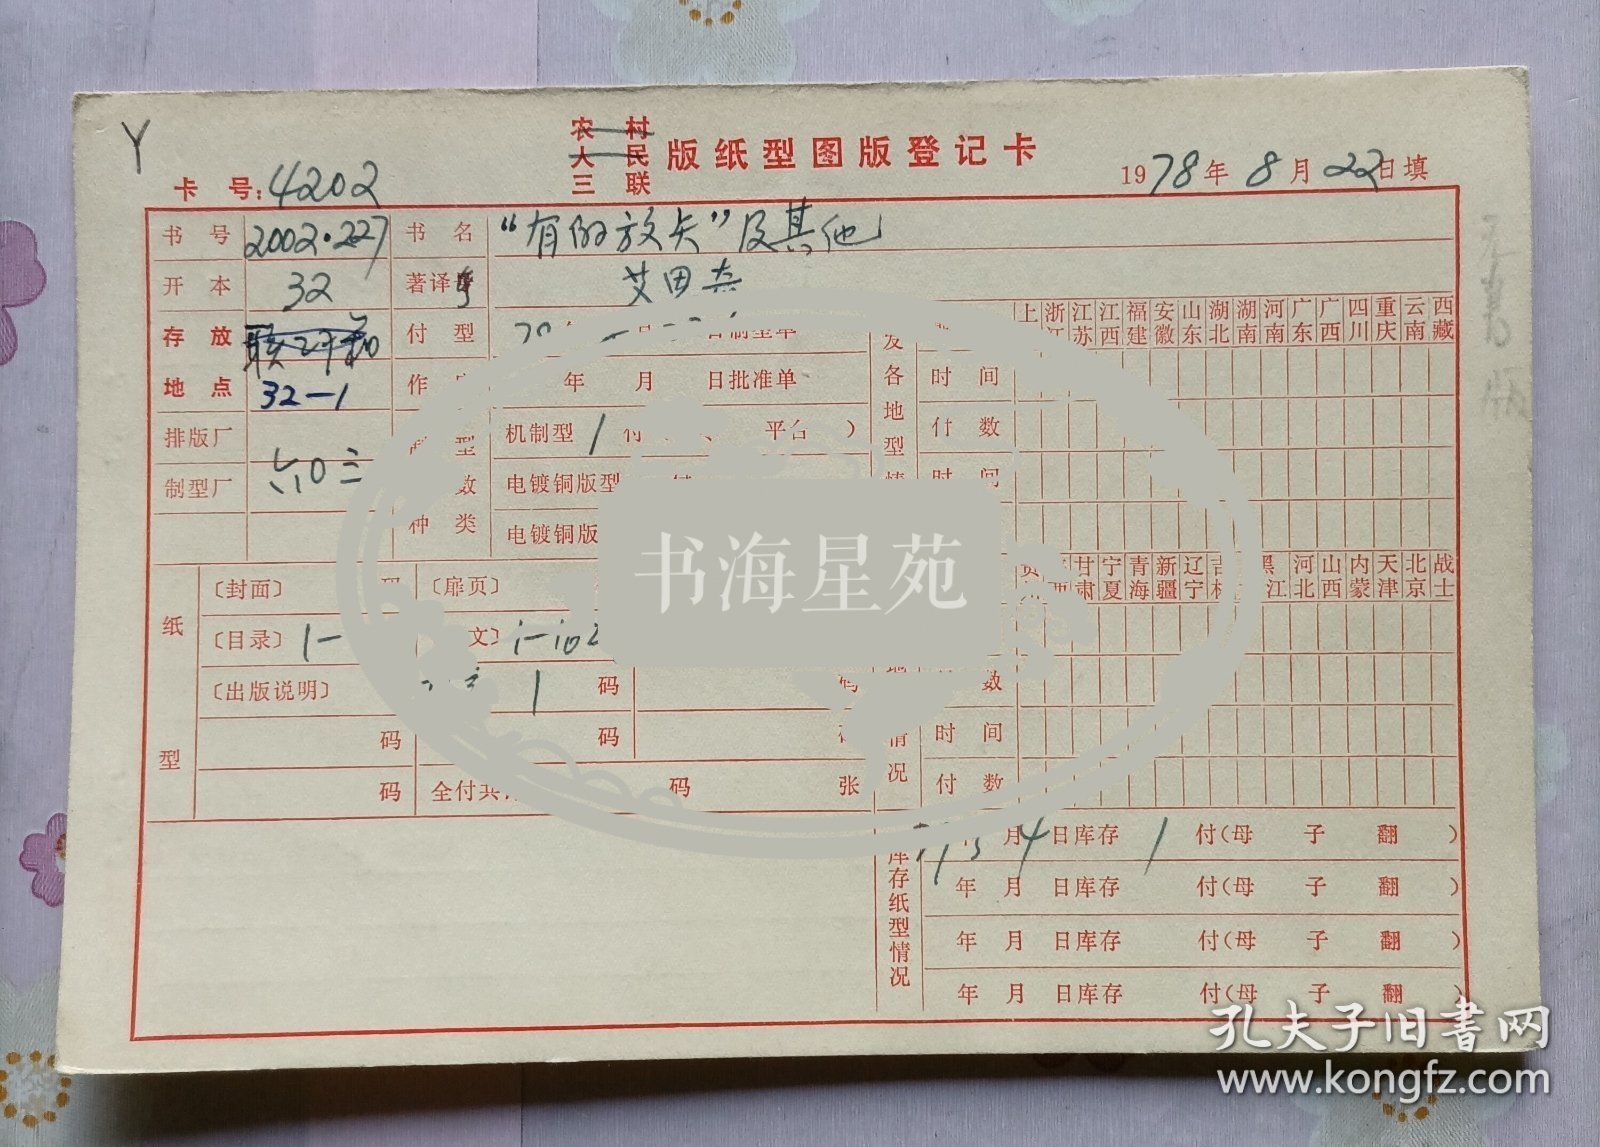 Y
农村
人民
三联
版纸型图版登记卡
卡号:4202
1978年8月22日填
书号 2002·227 书名 “有的放矢”及其他
开本 32 著译 艾思奇
存放 付型 制型单
地点 32-1 年 月 日批准单
排版厂 机制型 1 付 平台 )
制型厂 六〇三 数 电镀铜版型
种类 电镀铜版
发各地型情况
浙江 江苏 江西 福建 安徽 山东 湖北 湖南 河南 广东 广西 四川 重庆 云南 西藏
时间
付数
时间
甘肃 宁夏 青海 新疆 辽宁 吉林 黑江 河北 山西 内蒙 天津 北京 战士
数
时间
付数
纸型
〔封面〕 码 〔扉页〕
〔目录〕 1- 文〕
〔出版说明〕 1 码 码
码 码
码 全付共 码 张
库存纸型情况
月 4 日库存 1 付(母 子 翻 )
年 月 日库存 付(母 子 翻 )
年 月 日库存 付(母 子 翻 )
年 月 日库存 付(母 子 翻 )
书海星苑
孔夫子旧书网
www.kongfz.com